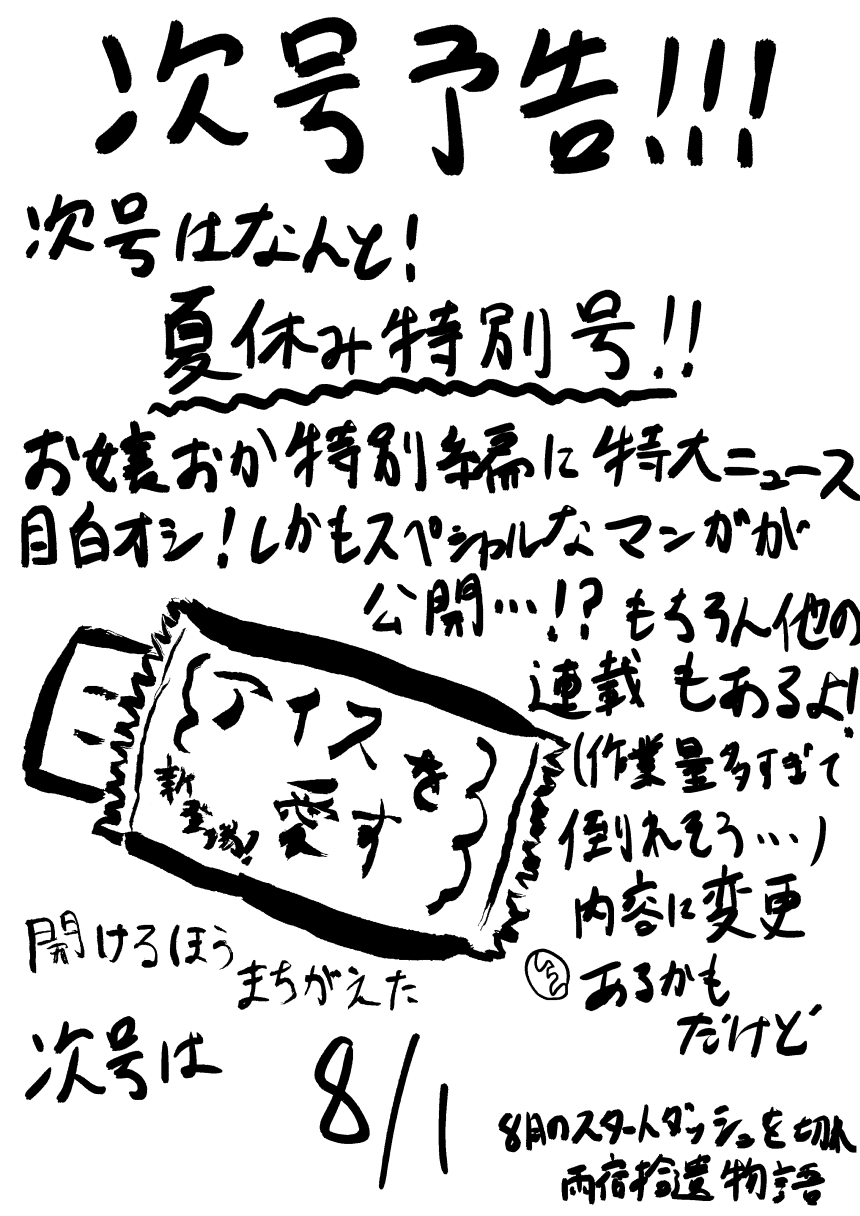 次号予告!!!
次号はなんと!
夏休み特別号!!
お嬢おか特別編に特大ニュース
目白オシ!しかもスペシャルなマンガが
公開…!?もちろん他の
連載もあるよ!
(作業量多すぎて
倒れそう…)
内容に変更
あるかも
だけど
アイスを
愛す
新登場!
開けるほう
まちがえた
次号は
8/1
8月のスタートダッシュを切れ
雨宿拾遺物語